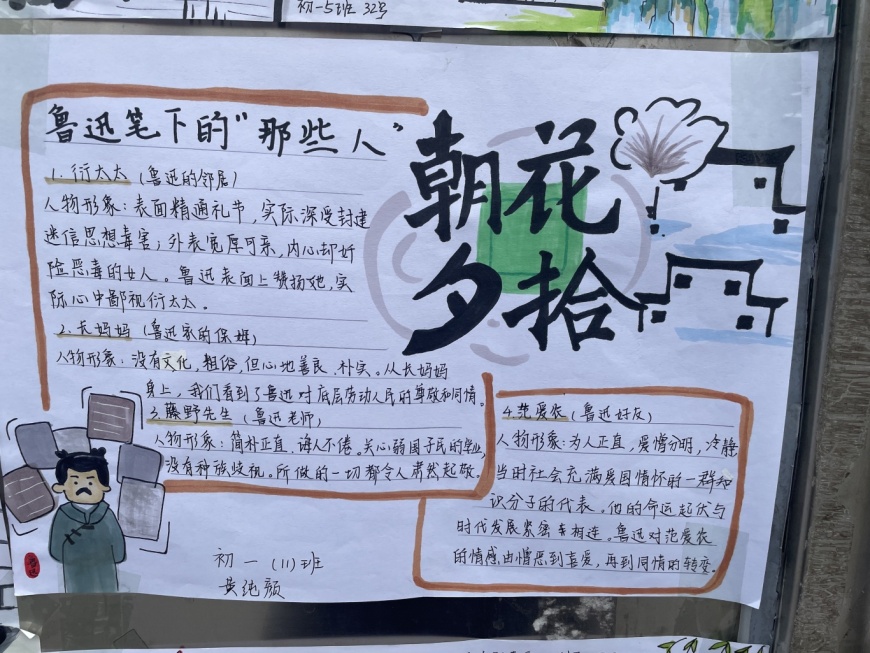 初一5班 32号
鲁迅笔下的“那些人”
朝花
夕拾
1. 衍太太（鲁迅的邻居）
人物形象：表面精通礼节，实际深受封建
迷信思想毒害；外表宽厚可亲，内心却奸
险恶毒的女人。鲁迅表面上赞扬她，实
际心中鄙视衍太太。
2. 长妈妈（鲁迅家的保姆）
人物形象：没有文化，粗俗，但心地善良、朴实。从长妈妈
身上，我们看到了鲁迅对底层劳动人民的尊敬和同情。
3. 藤野先生（鲁迅老师）
人物形象：简朴正直，诲人不倦。关心弱国子民的学业，
没有种族歧视。所做的一切都令人肃然起敬。
4. 范爱农（鲁迅好友）
人物形象：为人正直，爱憎分明，冷静
当时社会充满爱国情怀的一群知
识分子的代表。他的命运起伏与
时代发展紧密相连。鲁迅对范爱农
的情感由憎恶到喜爱，再到同情的转变。
初一（11）班
黄纯颜